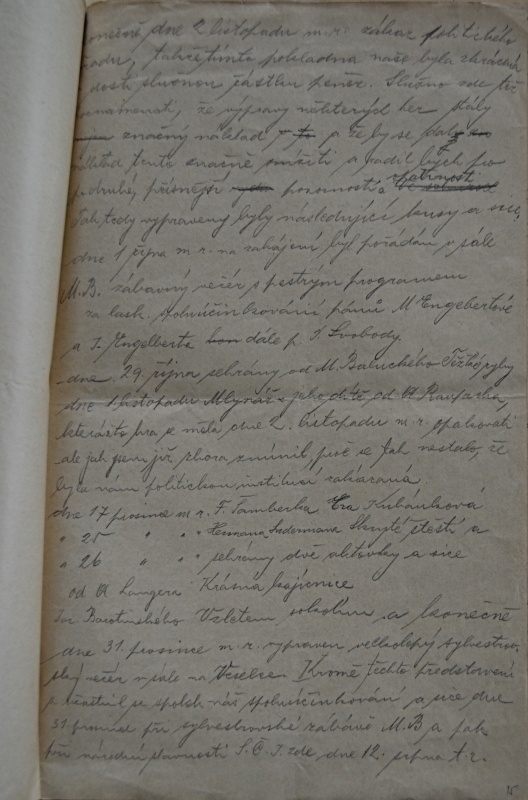 konečně dne 2 listopadu m r. zákaz politického
úřadu, takže tímto pokladna naše byla zkrácena
o dosti slušnou částku peněz. Slušno zde též
poznamenati, že výpravy některých her stály
značný náklad a že by se
náklad tento značně snížiti a radil bych po
podruhé, přísnější pozornosti a opatrnosti
Tak tedy vypraveny byly následující kusy a sice,
dne 1 října m r. na zahájení byl pořádán v sále
M.B. zábavný večer s pestrým programem
za lask. spoluúčinkování pánů M Engelbertové
a J. Engelberta dále p. J. Svobody.
dne 29. října sehrány od M. Baluckého Těžké ryby
dne 1. listopadu Mlynář a jeho dítě od Raupacha,
kterážto hra se měla dne 2. listopadu m r. opakovati
ale jak jsem již zhora zmínil, proč se tak nestalo, že
byla nám politickou institucí zakázaná
dne 17 prosince m r. F. Tamberka, Eva Kubánková
" 25 " " " Hermana Sudermana Skryté štěstí a
" 26 " " " sehrány dvě aktovky a sice
od Langera Krásná krajčnice
Jar Barotinského Vzletem sokolím a konečně
dne 31. prosince m. r. vypraven velkolepý sylvestrov
ský večer v sále na Veselce. Kromě těchto představení
zúčastnil se spolek náš spoluúčinkování a sice dne
31 prosince při sylvestrovské zábavě M.B a jak
při národní slavnosti S.Č.J. zde dne 12. srpna t. r.
15